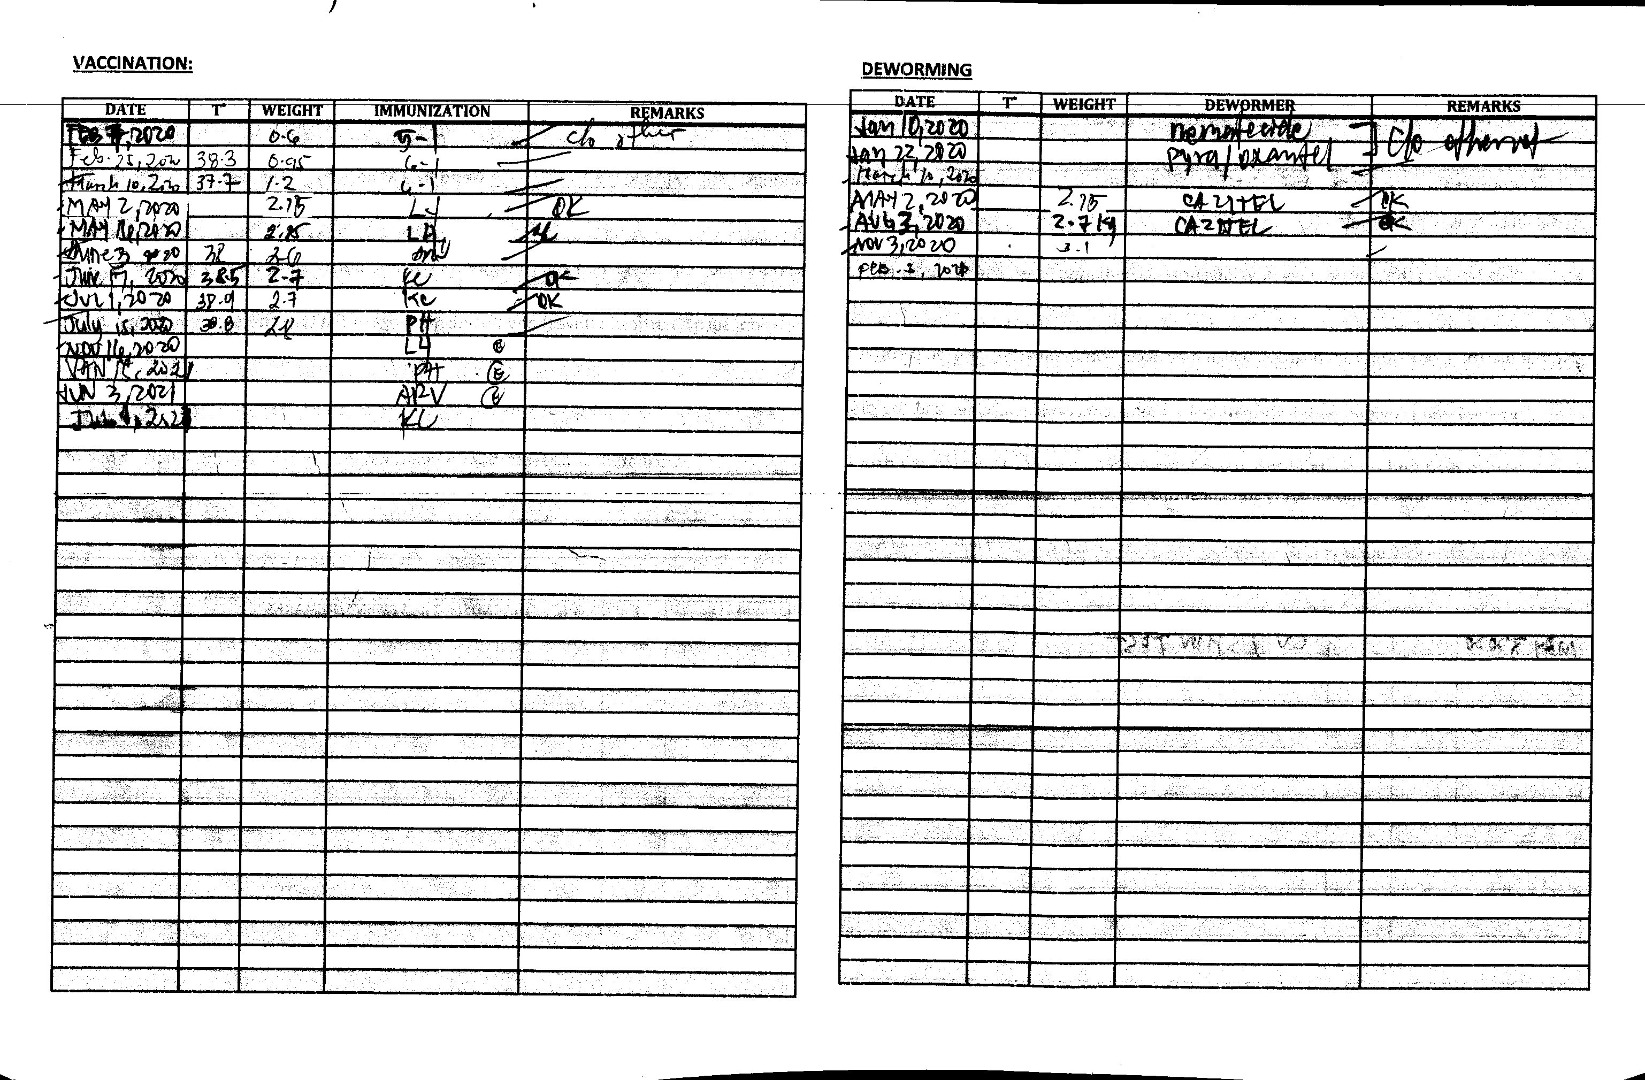 VACCINATION:
DATE T° WEIGHT IMMUNIZATION REMARKS
FEB 2020 0.6 5-1 c/o other
Feb. 25, 2020 38.3 0.95 6-1
March 10, 2020 37.7 1.2 6-1
MAY 2, 2020 2.15 L4 OK
MAY 16, 2020 2.25 L4 OK
June 3 2020 38 2.6
JUN 17, 2020 38.5 2.7 KC OK
JUL 1, 2020 38.9 2.7 KC OK
July 15, 2020 38.8 PH
NOV 16, 2020 L4 E
JAN 2021 PH E
JUN 3, 2021 ARV E
2021 KC
DEWORMING
DATE T° WEIGHT DEWORMER REMARKS
Jan 10, 2020 nematocide c/o other vet
Jan 22, 2020 pyra/oxantel
March 10, 2020
MAY 2, 2020 2.15 CAZITEL OK
AUG 3, 2020 2.7 kg CAZITEL OK
NOV 3, 2020 3.1
FEB. 3, 202